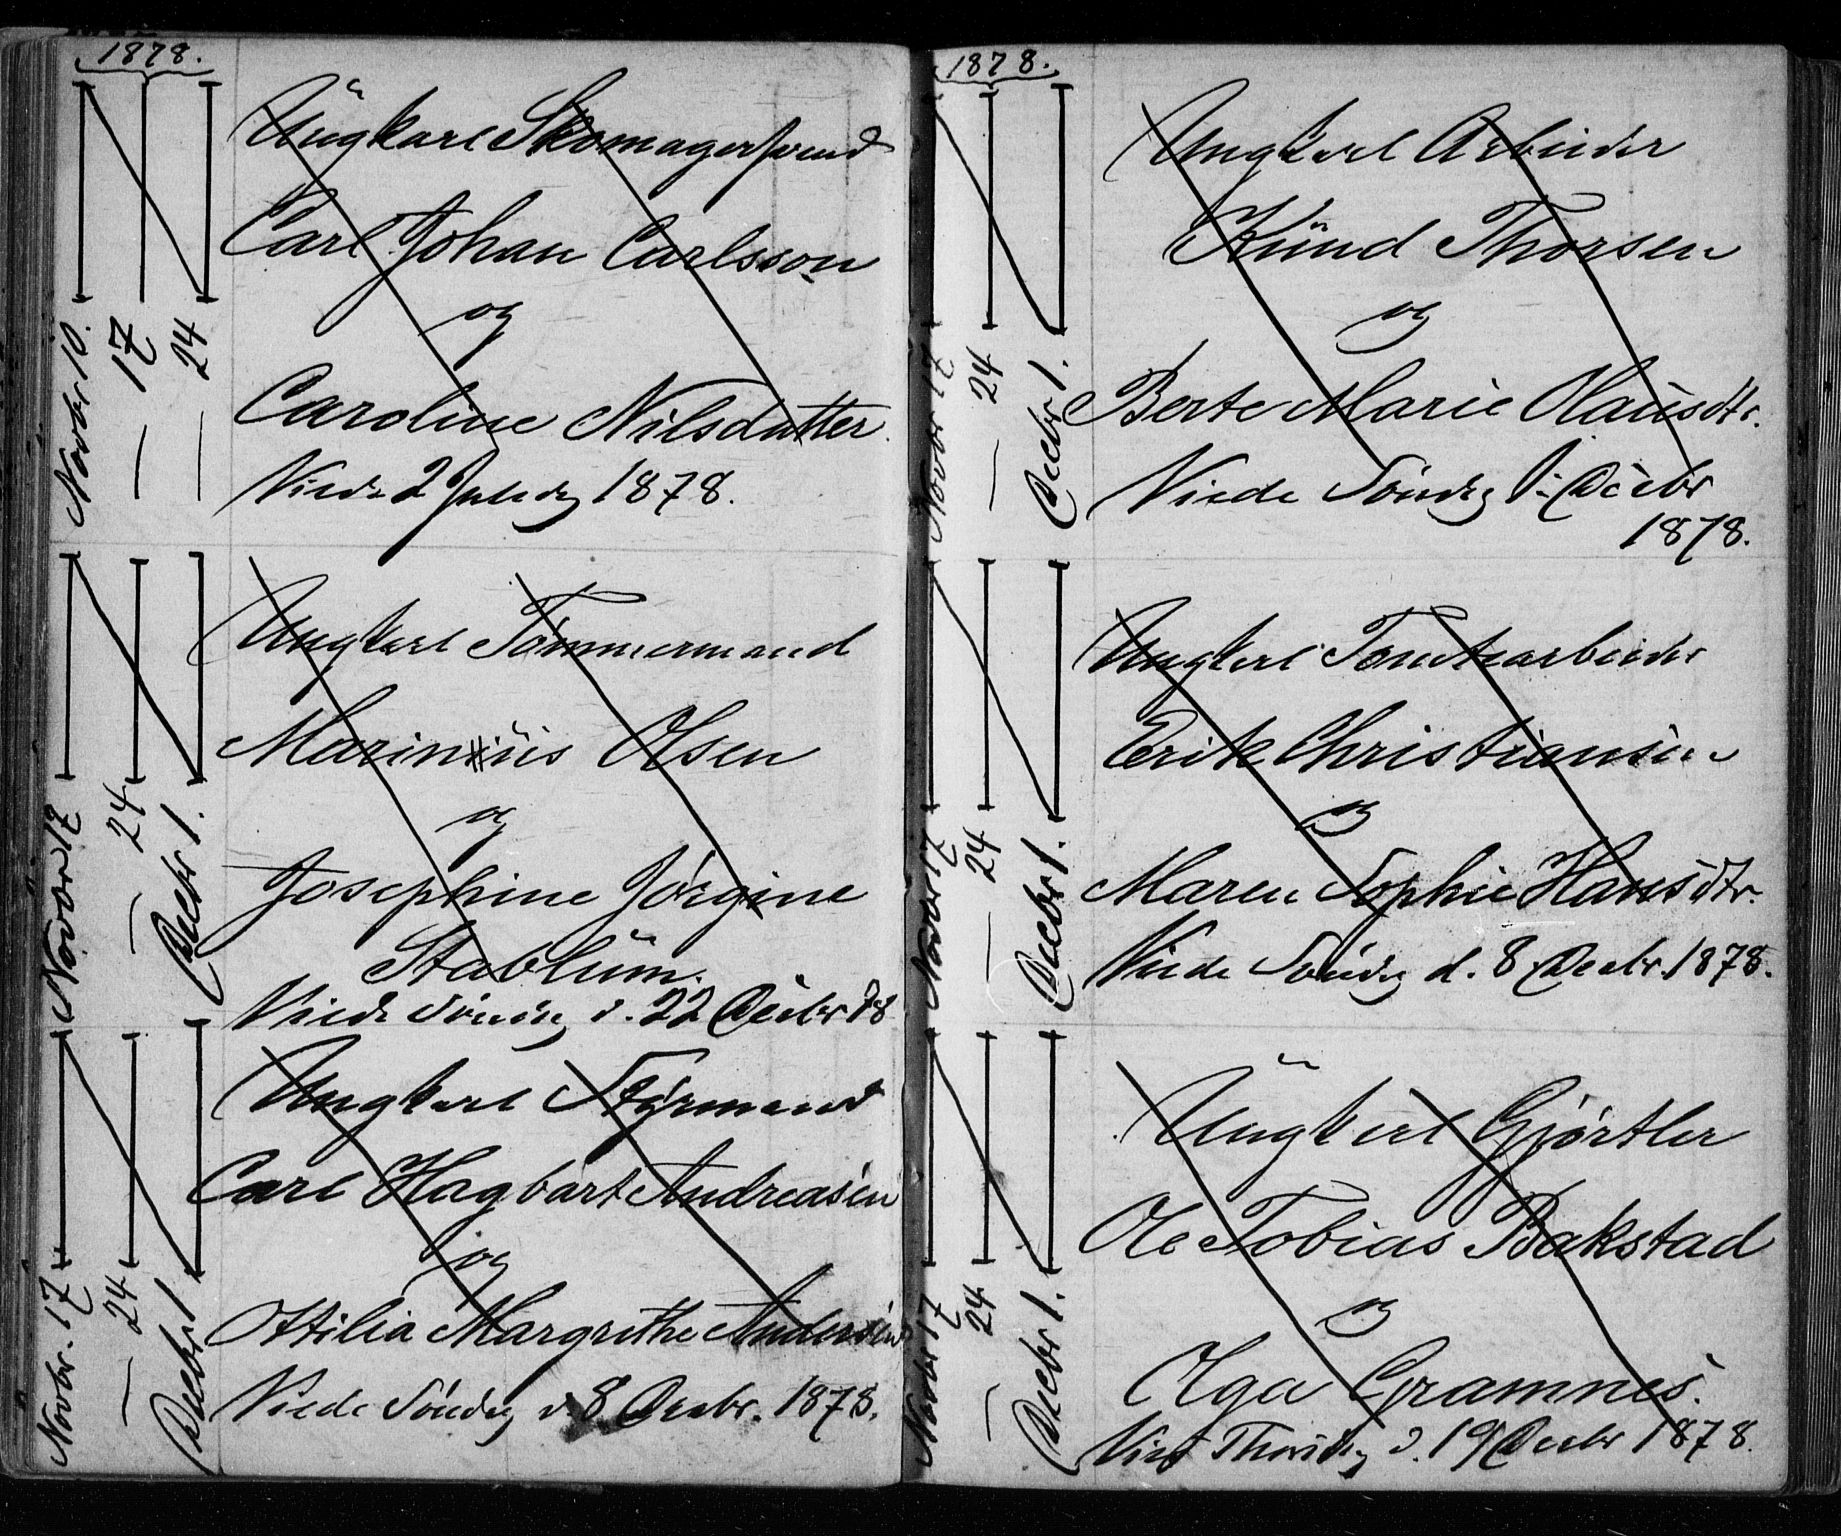 1878.
Novbr 10.
— 17
— 24
Ungkarl Skomagersvend
Carl Johan Carlsson
og
Caroline Nilsdatter.
Viede 2 Juledag 1878.
Novbr 17
— 24
Decbr 1.
Ungkarl Tømmermand
Marinius Olsen
og
Josephine Jørgine
Stablum.
Viede Søndag d. 22 Decbr 78
Novbr. 17
— 24
Decbr. 1
Ungkarl Styrmand
Carl Hagbart Andreasen
og
Ottilia Margrethe Andersen
Viede Søndag d 8 Decbr. 1878.
1878.
Novbr 17
— 24
Decbr 1.
Ungkarl Arbeider
Knud Thorsen
og
Berte Marie Olausdtr.
Viede Søndag 1. Decbr
1878.
Novbr 17
— 24
Decbr 1.
Ungkarl Tomtearbeider
Erik Christiansen
og
Maren Sophie Hansdtr.
Viede Søndag d. 8 Decbr. 1878.
Novbr 17
— 24
Decbr 1.
Ungkarl Gjørtler
Ole Tobias Bakstad
og
Olga Gramnes.
Viet Thorsdag d. 19 Decbr 1878.